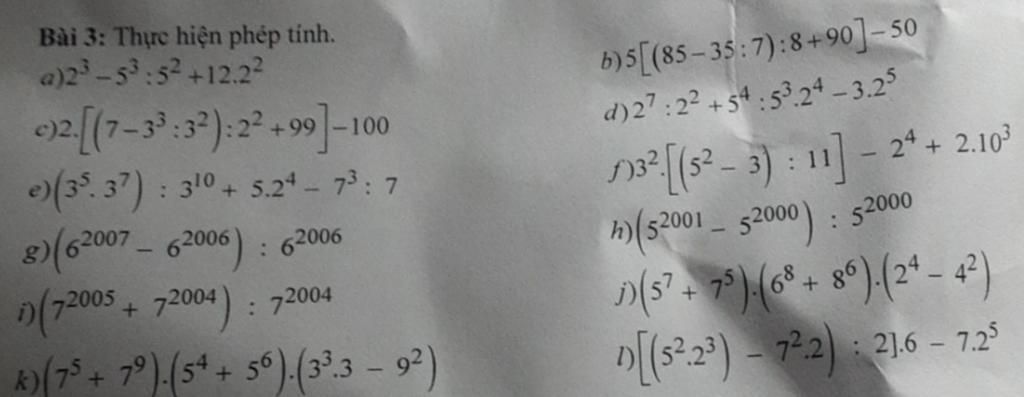 Bài 3: Thực hiện phép tính.
a)2³ – 5³ : 5² + 12.2²
b)5[(85 – 35 : 7) : 8 + 90] – 50
c)2.[(7 – 3³ : 3²) : 2² + 99] – 100
d)2⁷ : 2² + 5⁴ : 5³.2⁴ – 3.2⁵
e)(3⁵. 3⁷) : 3¹⁰ + 5.2⁴ – 7³ : 7
f)3².[(5² – 3) : 11] – 2⁴ + 2.10³
g)(6²⁰⁰⁷ – 6²⁰⁰⁶) : 6²⁰⁰⁶
h)(5²⁰⁰¹ – 5²⁰⁰⁰) : 5²⁰⁰⁰
i)(7²⁰⁰⁵ + 7²⁰⁰⁴) : 7²⁰⁰⁴
j)(5⁷ + 7⁵).(6⁸ + 8⁶).(2⁴ – 4²)
k)(7⁵ + 7⁹).(5⁴ + 5⁶).(3³.3 – 9²)
l)[(5².2³) – 7².2) : 2].6 – 7.2⁵